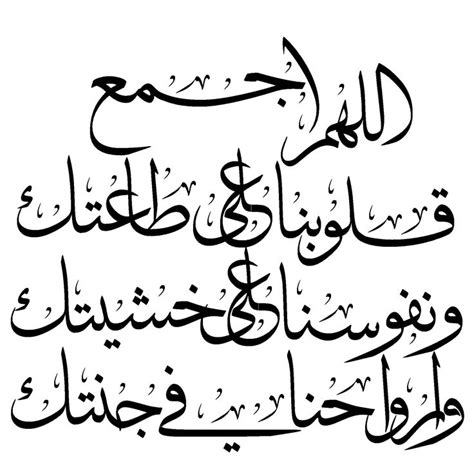 اللهم اجمع
قلوبنا على طاعتك
ونفوسنا على خشيتك
وارواحنا في جنتك